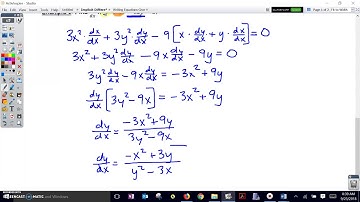 3x² · dx/dx + 3y² dy/dx − 9[x · dy/dx + y · dx/dx] = 0
3x² + 3y² dy/dx − 9x dy/dx − 9y = 0
3y² dy/dx − 9x dy/dx = −3x² + 9y
dy/dx [3y² − 9x] = −3x² + 9y
dy/dx = −3x² + 9y / 3y² − 9x
dy/dx = −x² + 3y / y² − 3x